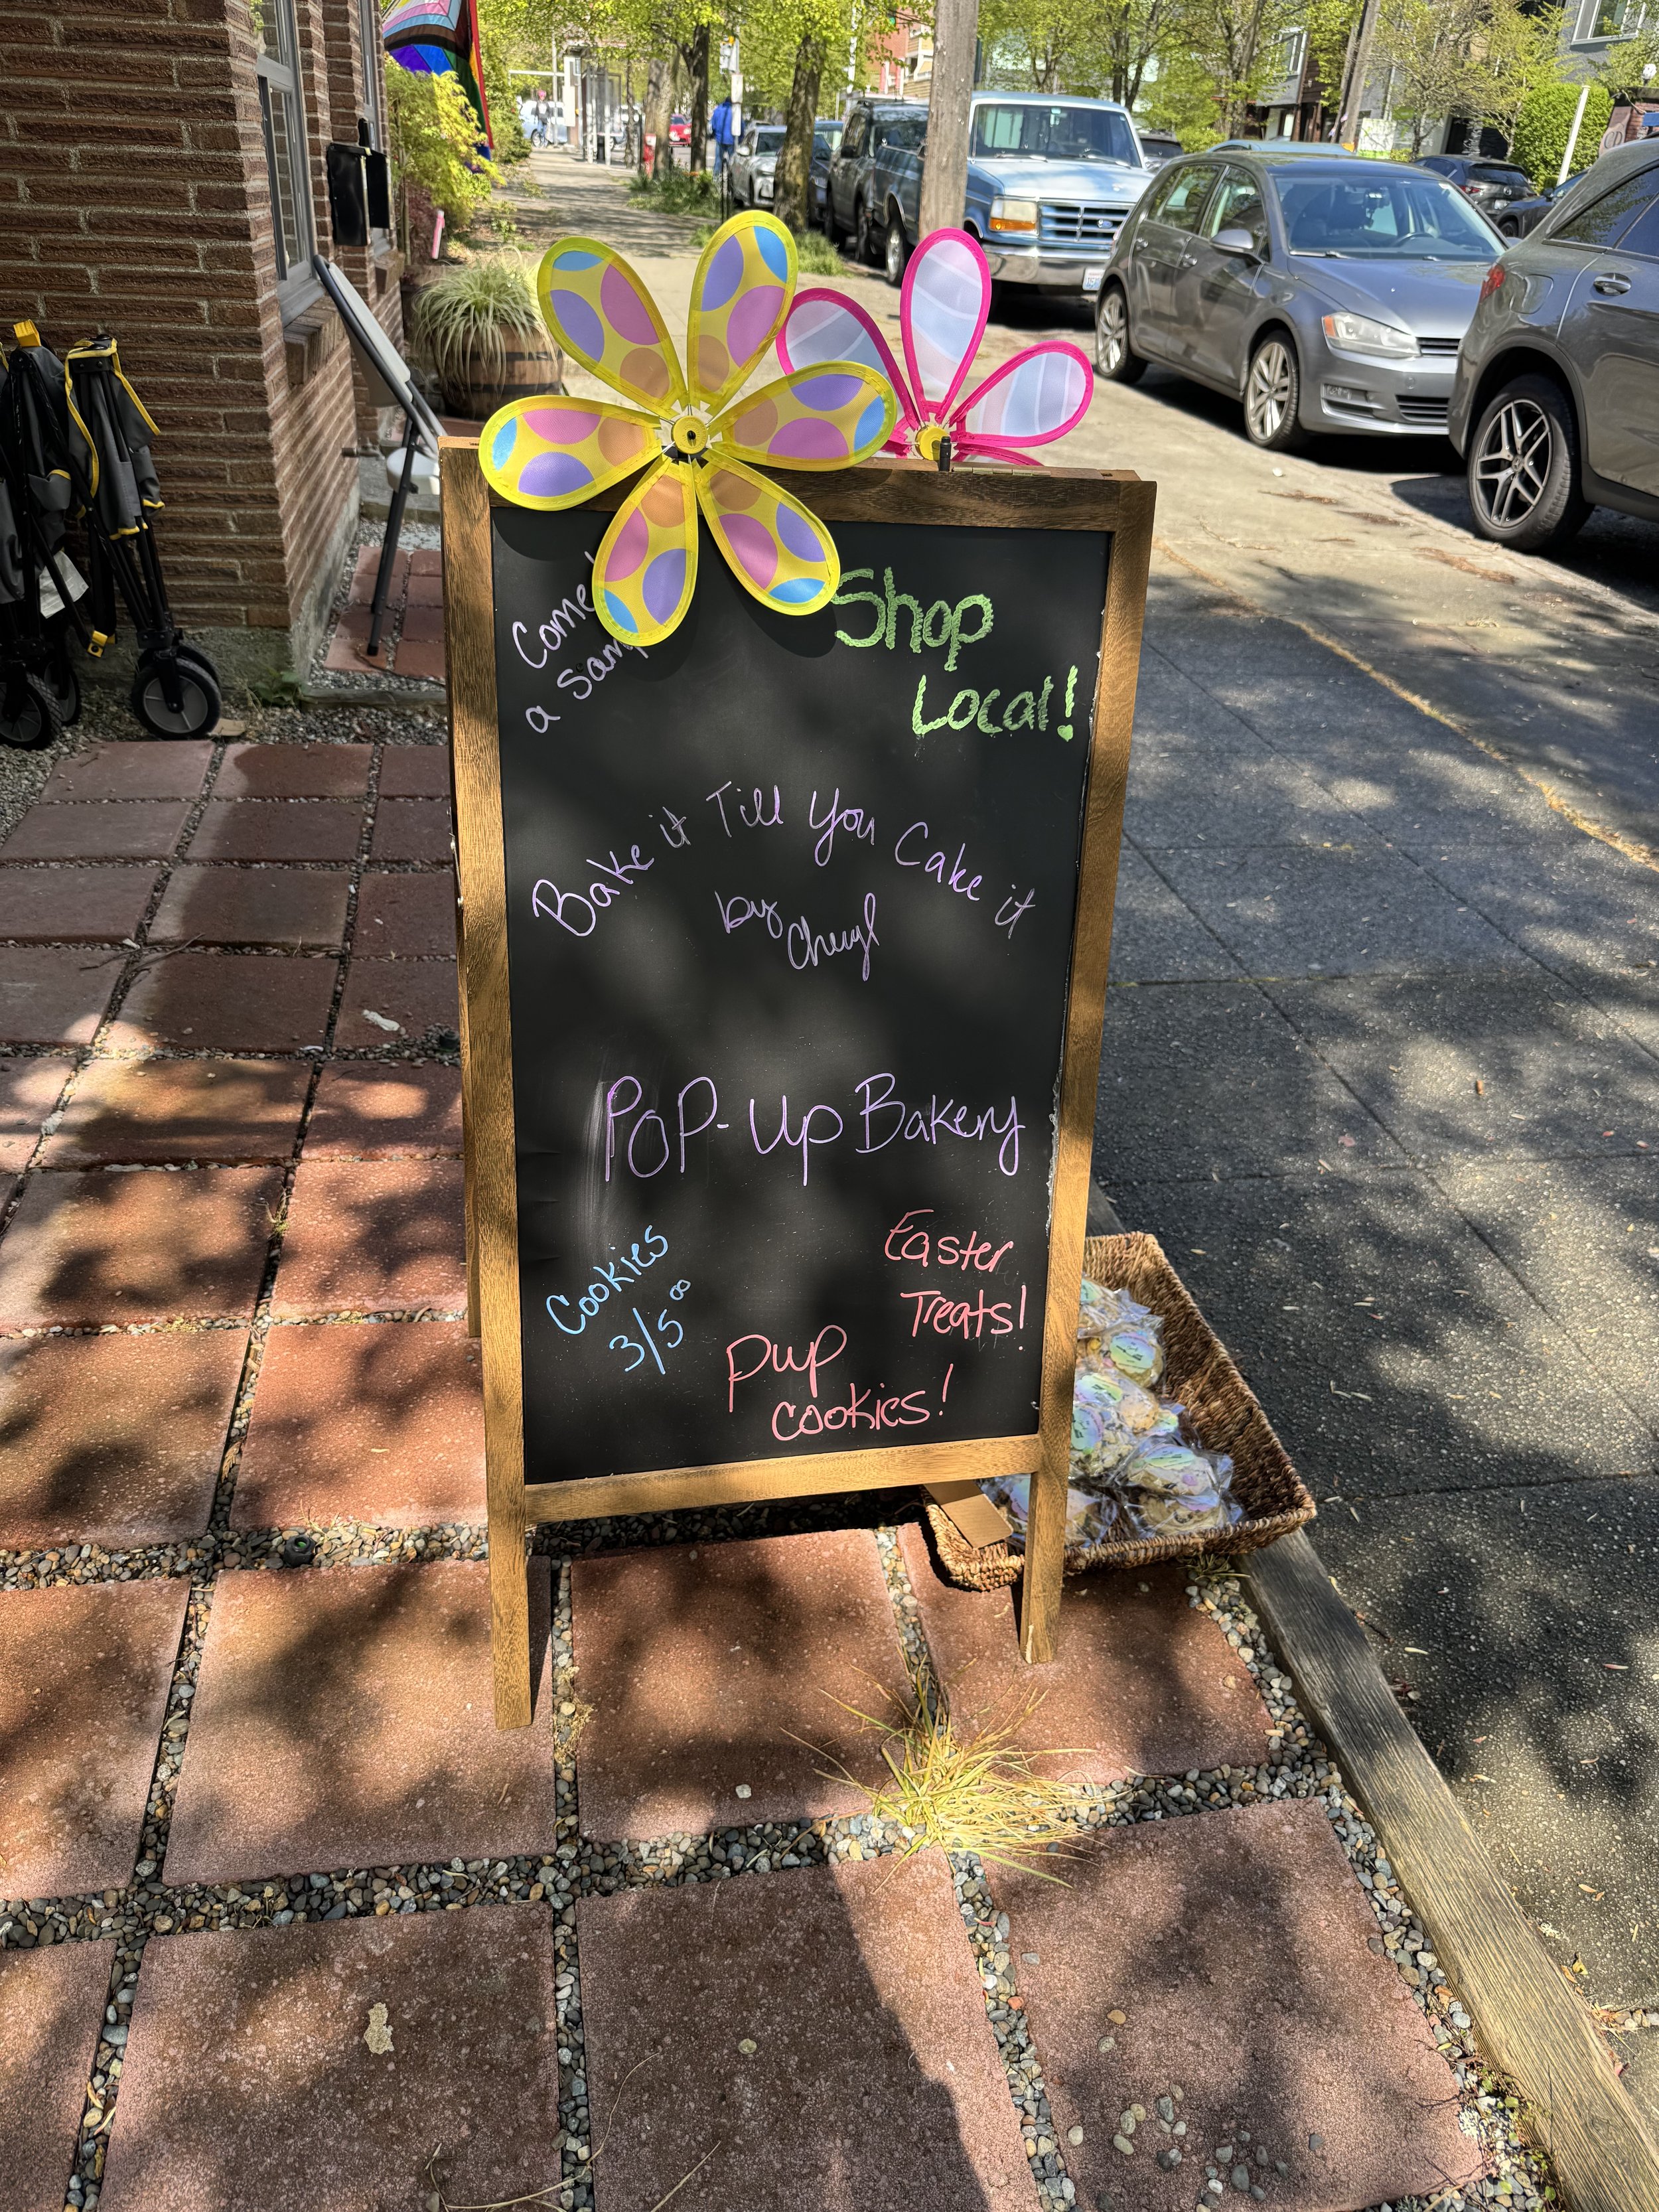 Come
a
Shop
Local!
Bake it Till You Cake it
by Cheryl
POP-Up Bakery
Cookies
3/5⁰⁰
Easter
Treats!
Pup
cookies!